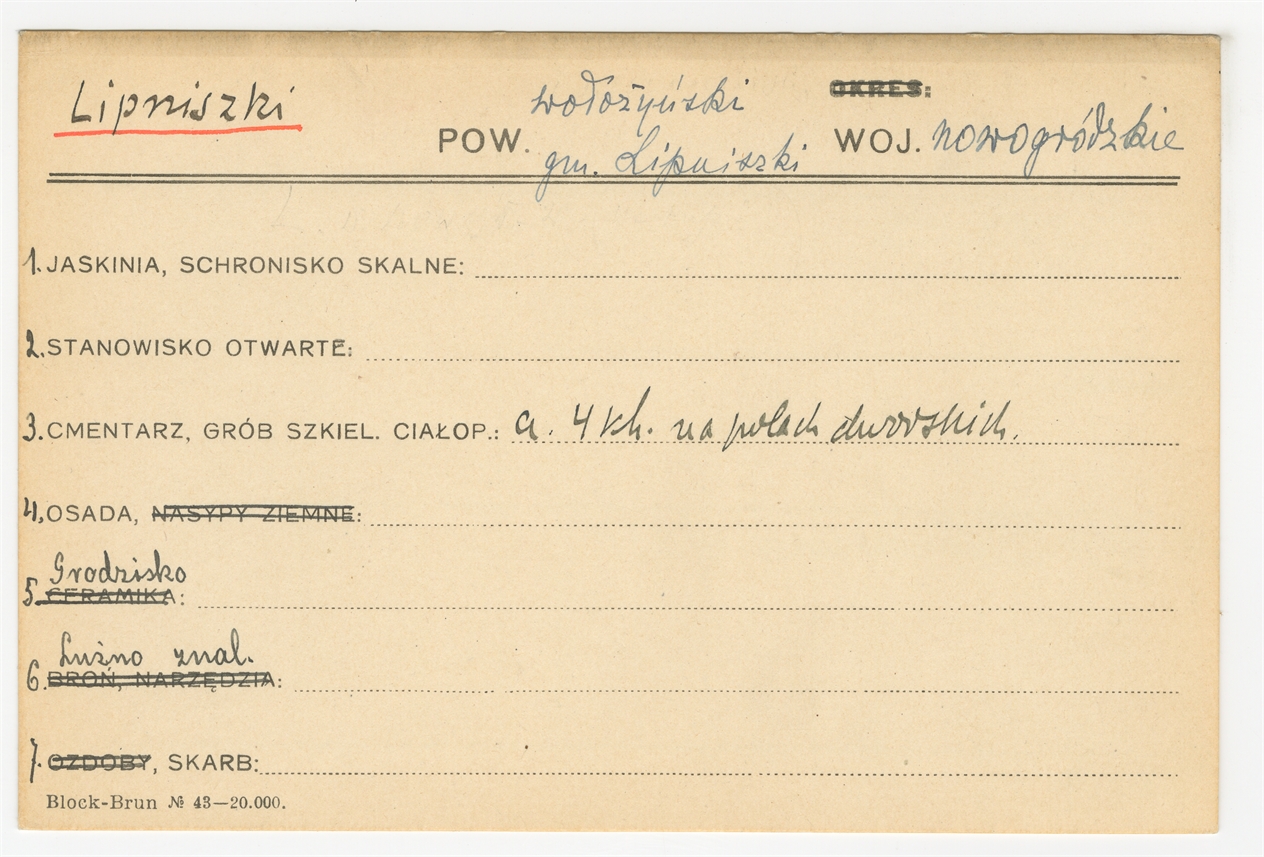 Lipniszki
wołożyński
OKRES:
POW.
gm. Lipniszki
WOJ. nowogródzkie
1. JASKINIA, SCHRONISKO SKALNE:
2. STANOWISKO OTWARTE:
3. CMENTARZ, GRÓB SZKIEL. CIAŁOP.: a. 4 kh. na polach dworskich.
4. OSADA, NASYPY ZIEMNE:
Grodzisko
5. CERAMIKA:
Luźno znal.
6. BROŃ, NARZĘDZIA:
7. OZDOBY, SKARB:
Block-Brun № 43—20.000.